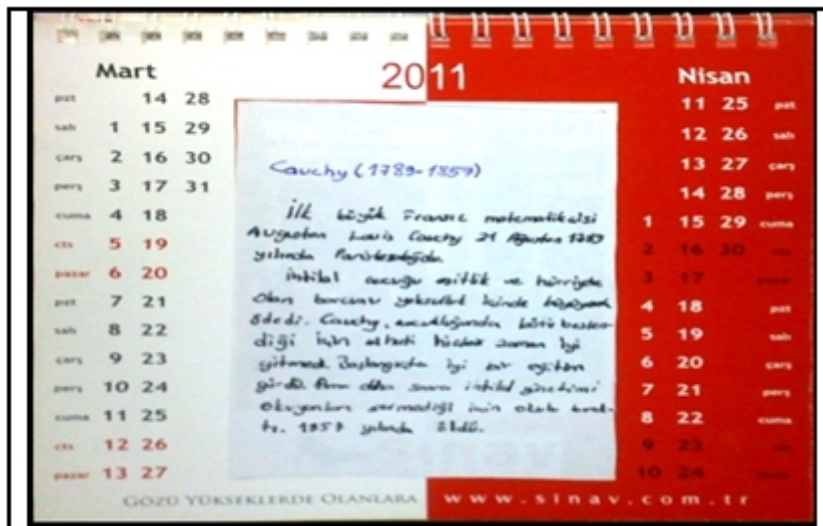 Mart
2011
Nisan
pzt 14 28
salı 1 15 29
çarş 2 16 30
perş 3 17 31
cuma 4 18
cts 5 19
pazar 6 20
pzt 7 21
salı 8 22
çarş 9 23
perş 10 24
cuma 11 25
cts 12 26
pazar 13 27
Cauchy (1789-1857)
İlk büyük Fransız matematikçisi
Augustin Louis Cauchy 21 Ağustos 1789
yılında Paris'te doğdu.
ihtilal çocuğu eşitlik ve hürriyete
olan borcunu yoksulluk içinde büyüyerek
ödedi. Cauchy, çocukluğunda kötü beslen-
diği için sıhhati hiçbir zaman iyi
gitmedi. Başlangıçta iyi bir eğitim
gördü. Ama daha sonra ihtilal yönetimi
için okulu bırak-
tı. 1857 yılında öldü.
11 25 pzt
12 26 salı
13 27 çarş
14 28 perş
1 15 29 cuma
2 16 30 cts
3 17 pazar
4 18 pzt
5 19 salı
6 20 çarş
7 21 perş
8 22 cuma
9 23 cts
10 24 pazar
GÖZÜ YÜKSEKLERDE OLANLARA
www.sinav.com.tr